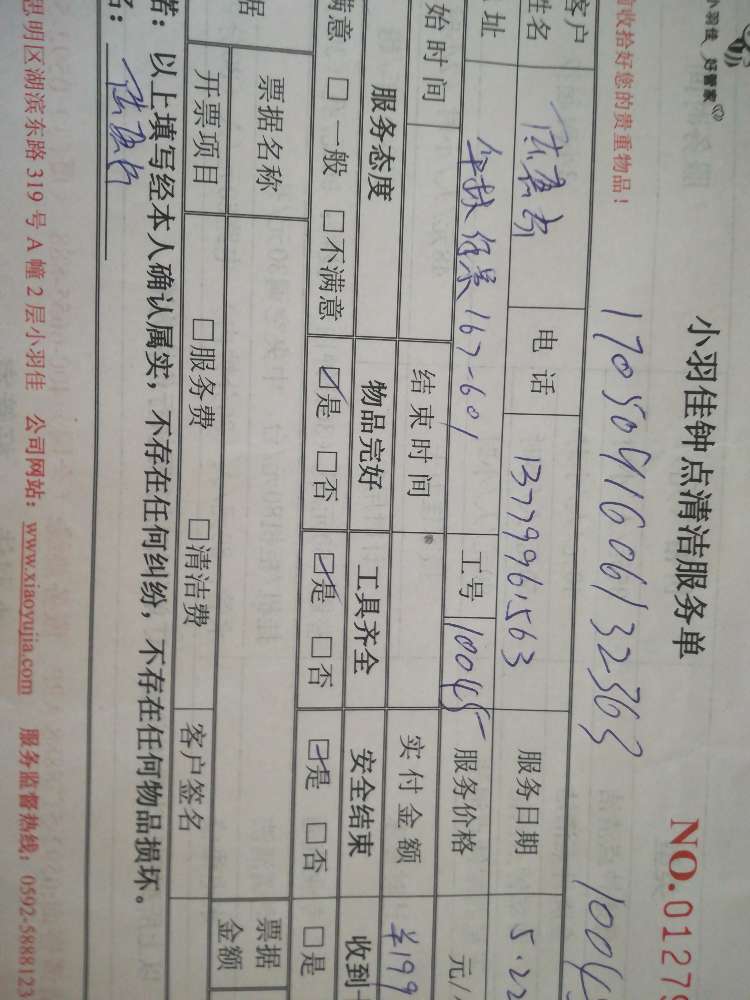 小羽佳 好管家
小羽佳钟点清洁服务单
NO.0127
收拾好您的贵重物品！
17050916061323​63
1004
客户姓名
电话
服务日期
5.22
址
167-601
工号
10045
服务价格
元/
始时间
结束时间
实付金额
¥199
服务态度
物品完好
工具齐全
安全结束
收到
满意 □一般 □不满意
☑是 □否
☑是 □否
☑是 □否
□是
据
票据名称
票据金额
开票项目
□服务费
□清洁费
客户签名
：以上填写经本人确认属实，不存在任何纠纷，不存在任何物品损坏。
名：
思明区湖滨东路 319 号 A 幢 2 层小羽佳 公司网站：www.xiaoyujia.com 服务监督热线：0592-5888123